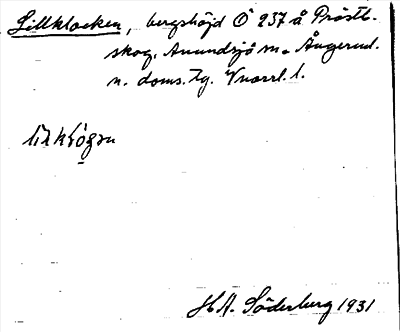 Lillklocken, bergshöjd Ö 237 å Prästb.
skog, Anundsjö sn. Ångerml.
n. doms. tg. Vnorrl. l.
H A. Söderberg 1931